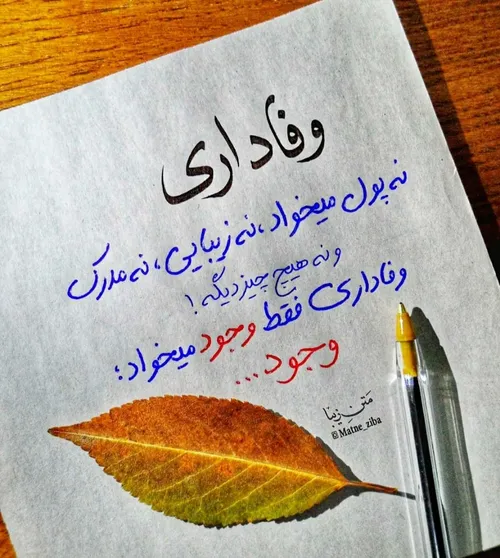 وفاداری
نه پول میخواد، نه زیبایی، نه مدرک
و نه هیچ چیز دیگه!
وفاداری فقط وجود میخواد؛
وجود...
مَتنِ زیبا
@Matne_ziba